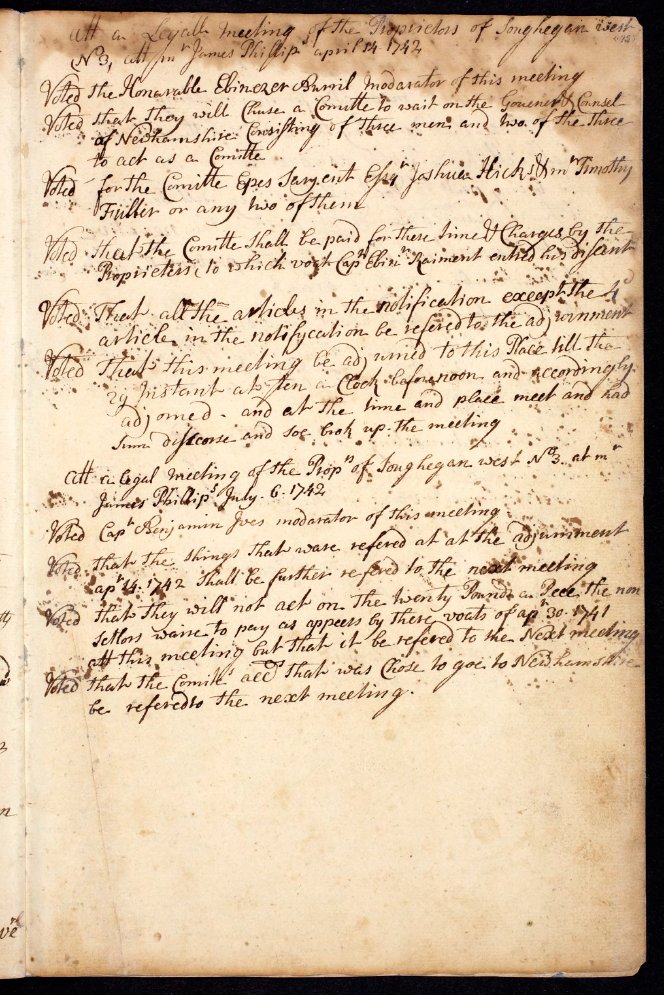 att a Legall meeting of the Proprietors of Souhegan west
No 3, att mr James Phillips april 14 1742
Voted the Honarable Ebinezer Burril modarator of this meeting
Voted that they will Chuse a Comitte to wait on the Gouener & Counsel
of Newhamshire Consisting of three men and two of the three
to act as a Comitte
Voted for the Comitte Epes Sargent Esqr Joshua Hicks & mr Timothy
Fuller or any two of them
Voted that the Comitte Shall be paid for there time & Charges by the
Proprieters, to which voat Capt Ebinr Raiment entred his discent
Voted That all the articles in the notification except the 4d
article in the notifycation be refered to the adjournment
Voted That this meeting be adjurned to this Place till the
29 Instant at ten a Clock before noon and accordingly
adjorned. and at the time and place meet and had
Sum discorse and soe brok up the meeting
att a legal meeting of the Props of Souhegan west No 3. at mr
James Phillips July. 6. 1742
Voted Capt Benjamin Ives modarator of this meeting
Voted that the things that ware refered at at the adjurnment
apr 14. 1742 Shall be further refered to the next meeting
Voted that they will not act on the twenty Pounds a Pece the non
setlors warre to pay as appeers by there voats of apr 30. 1741
att this meeting but that it be refered to the Next meeting
Voted that the Comites acct that was Chose to goe to Newhamshire
be refered to the next meeting.